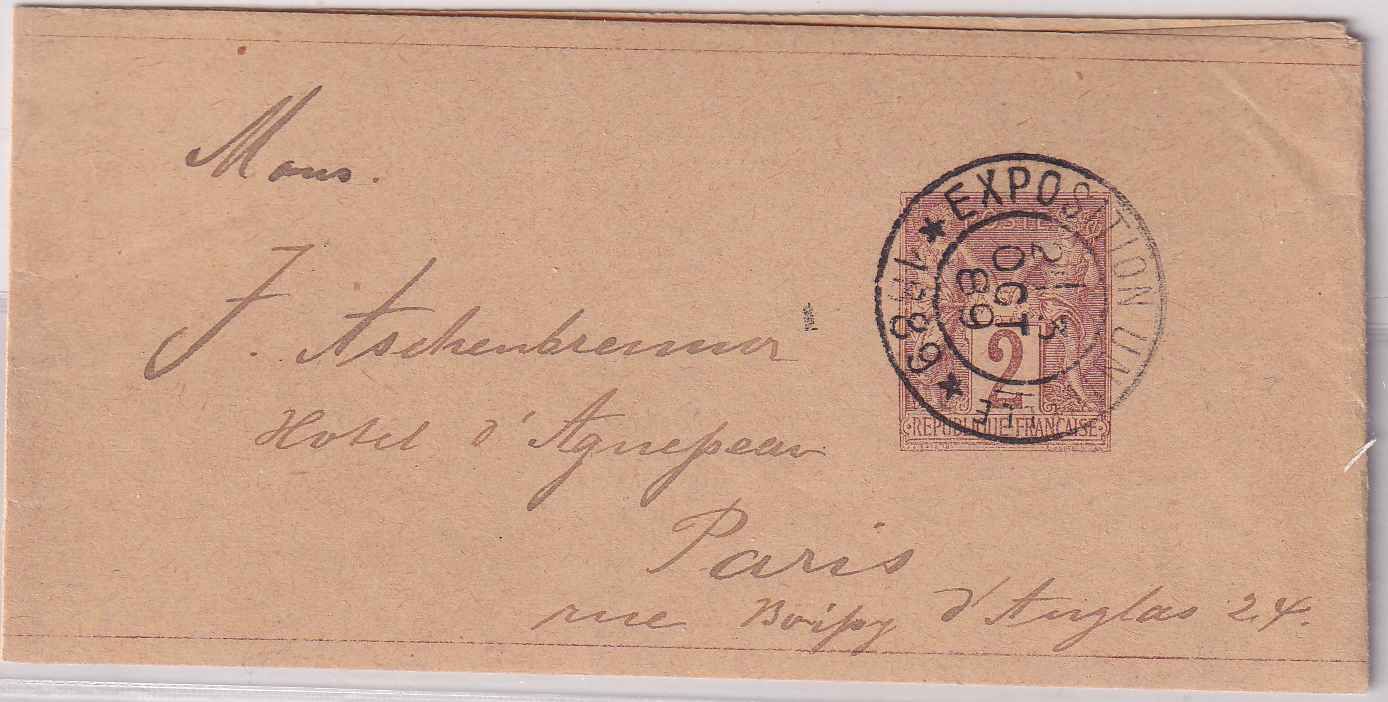 Mons.
J. Aschenbrenner
Hotel d'Aguesseau
Paris
rue Boissy d'Anglas 24.
★ EXPOSITION UNLLE ★ 1889
OCT
89
2
REPUBLIQUE FRANÇAISE